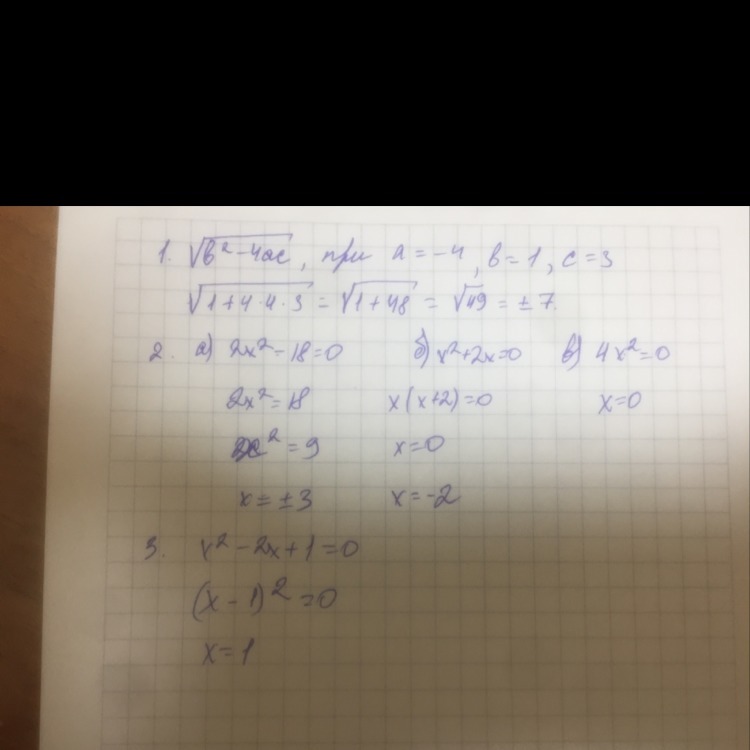 1. √(b²-4ac), при a=-4, b=1, c=3
√(1+4·4·3) = √(1+48) = √49 = ±7.
2. а) 2x²-18=0 б) x²+2x=0 в) 4x²=0
2x²=18 x(x+2)=0 x=0
x²=9 x=0
x=±3 x=-2
3. x²-2x+1=0
(x-1)²=0
x=1